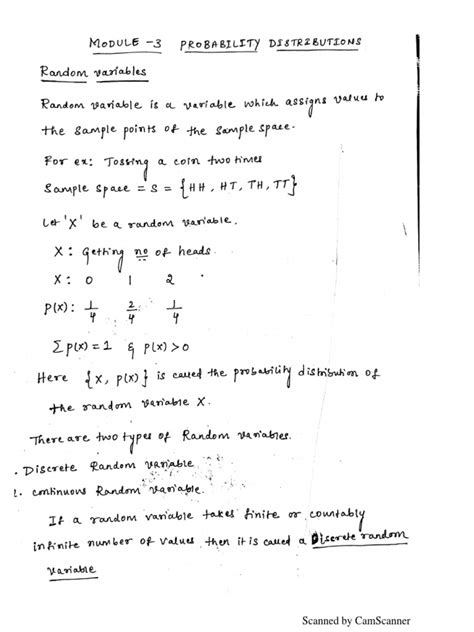 MODULE -3 PROBABILITY DISTRIBUTIONS
Random variables
Random variable is a variable which assigns values to
the sample points of the sample space.
For ex: Tossing a coin two times
Sample space = S = {HH, HT, TH, TT}
Let 'X' be a random variable.
X: Getting no of heads.
X: 0 1 2
P(X): 1/4 2/4 1/4
Σp(x)=1 & p(x)>0
Here {X, p(x)} is called the probability distribution of
the random variable X.
There are two types of Random variables.
. Discrete Random variable
2. continuous Random variable.
If a random variable takes finite or countably
infinite number of values then it is called a Discrete random
variable
Scanned by CamScanner